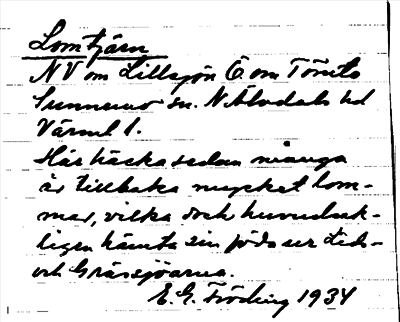 Lomtjärn
NV om Lillsjön Ö om Törnto
Sunnemo sn. N. Älvdals hd
Värml l.
Här häcka sedan många
år tillbaka mycket lom-
mar, vilka dock huvudsak-
ligen hämta sin föda ur Lids-
och Grässjöarna.
E. G. Fröding 1934